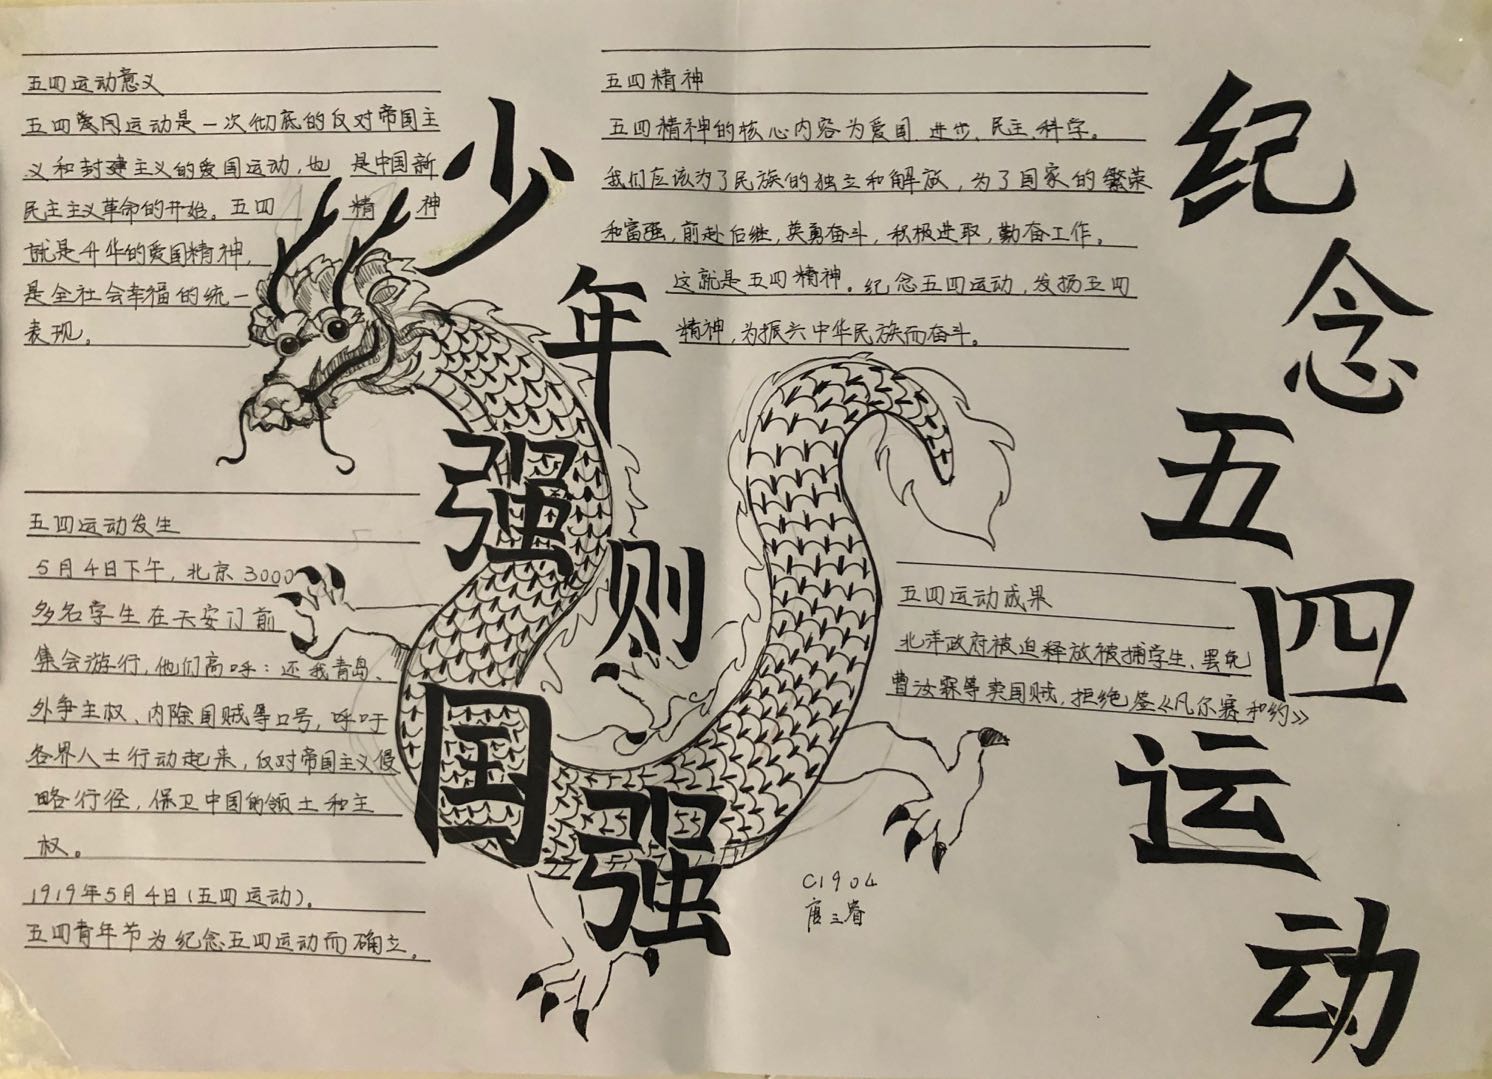 纪念五四运动
少年强则国强
五四运动意义
五四爱国运动是一次彻底的反对帝国主
义和封建主义的爱国运动，也是中国新
民主主义革命的开始。五四精神
就是升华的爱国精神，
是全社会幸福的统一
表现。
五四精神
五四精神的核心内容为爱国、进步、民主、科学。
我们应该为了民族的独立和解放，为了国家的繁荣
和富强，前赴后继，英勇奋斗，积极进取，勤奋工作。
这就是五四精神。纪念五四运动，发扬五四
精神，为振兴中华民族而奋斗。
五四运动发生
5月4日下午，北京3000
多名学生在天安门前
集会游行，他们高呼：还我青岛、
外争主权、内除国贼等口号，呼吁
各界人士行动起来，反对帝国主义侵
略行径，保卫中国的领土和主
权。
1919年5月4日(五四运动)。
五四青年节为纪念五四运动而确立。
五四运动成果
北洋政府被迫释放被捕学生、罢免
曹汝霖等卖国贼，拒绝签《凡尔赛和约》
C1904
唐三睿